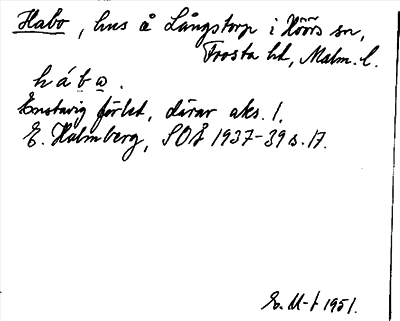 Habo, hus å Långstorp i Höörs sn,
Frosta hd, Malm. l.
hábo.
Enstavig förled, därav aks. 1.
E. Holmberg, SOÅ 1937-39 s. 17.
E. M-t 1951.